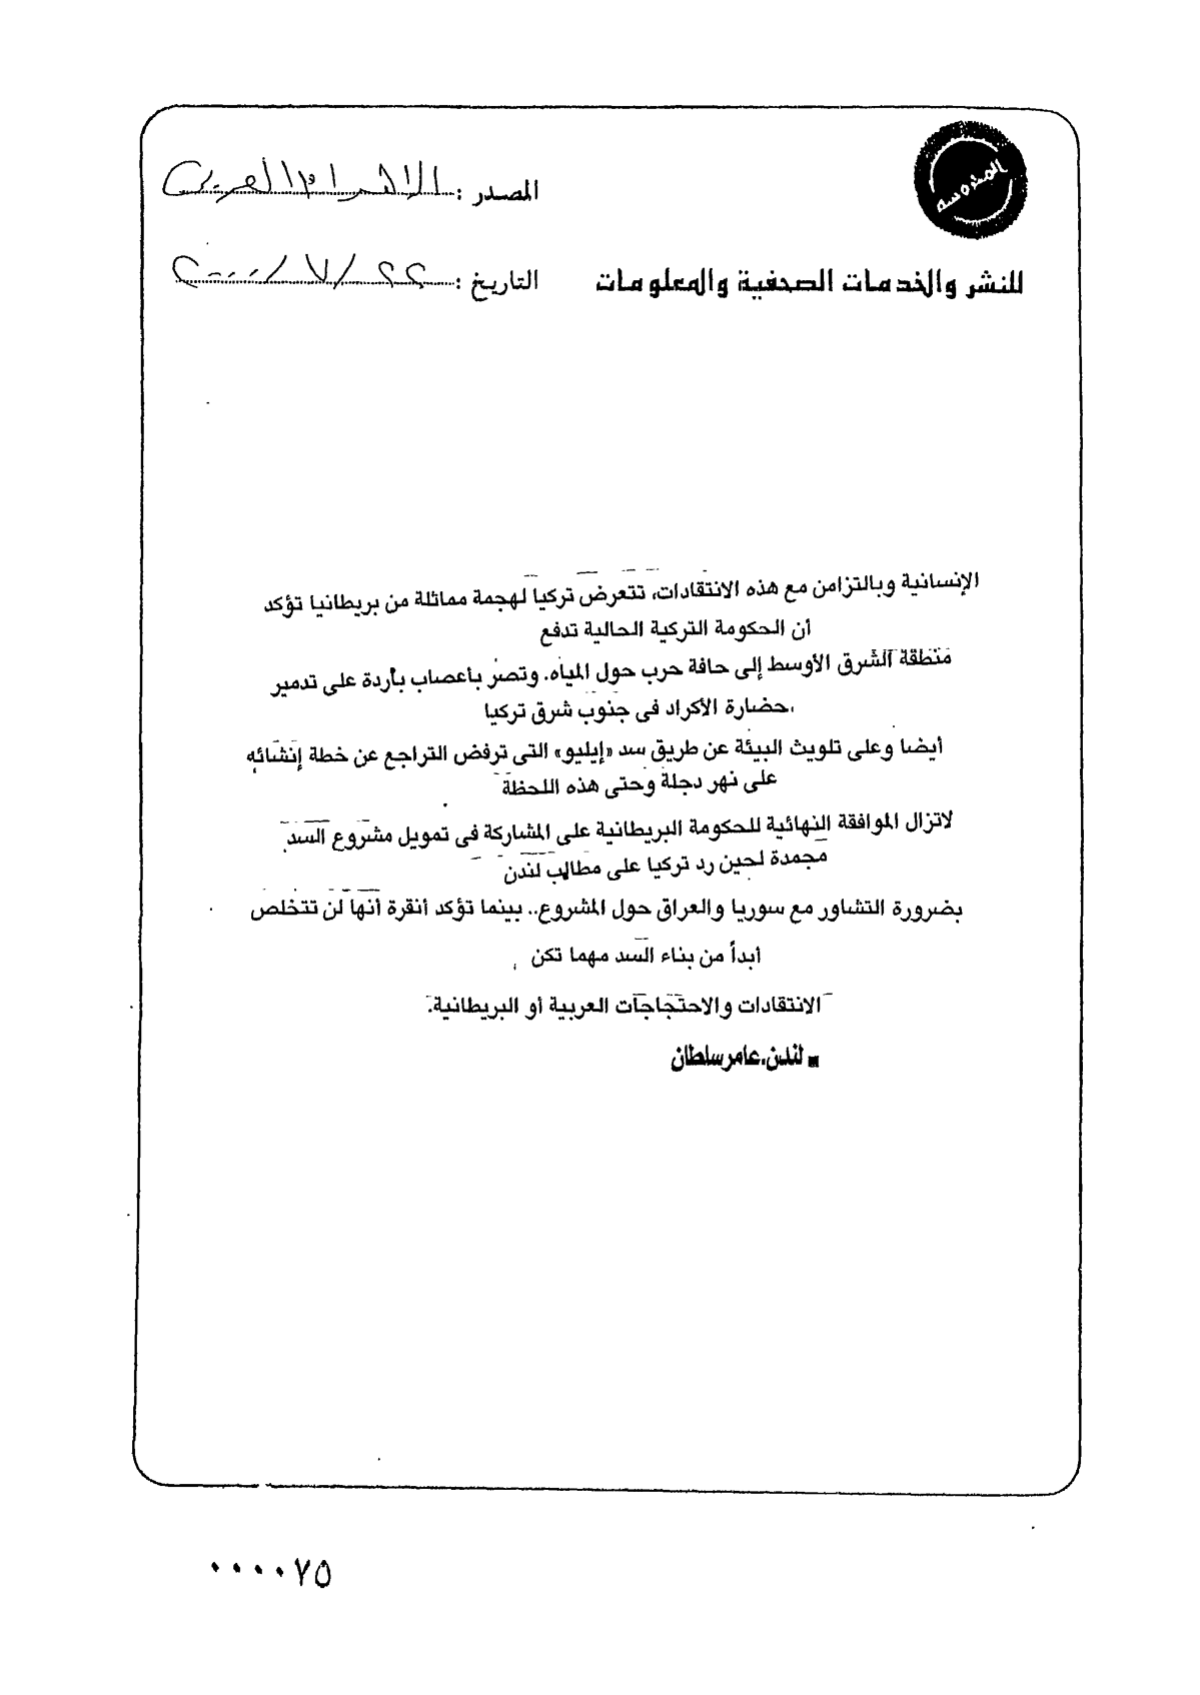 المحروسة
المصدر : الاهرام العربى
للنشر والخدمات الصحفية والمعلومات
التاريخ : ٢٢ / ٧ / ٢٠٠٠
الإنسانية وبالتزامن مع هذه الانتقادات، تتعرض تركيا لهجمة مماثلة من بريطانيا تؤكد
أن الحكومة التركية الحالية تدفع
منطقة الشرق الأوسط إلى حافة حرب حول المياه. وتصر بأعصاب باردة على تدمير
حضارة الأكراد فى جنوب شرق تركيا
أيضا وعلى تلويث البيئة عن طريق سد «إيليو» التى ترفض التراجع عن خطة إنشائه
على نهر دجلة وحتى هذه اللحظة
لاتزال الموافقة النهائية للحكومة البريطانية على المشاركة فى تمويل مشروع السد
مجمدة لحين رد تركيا على مطالب لندن
بضرورة التشاور مع سوريا والعراق حول المشروع.. بينما تؤكد أنقرة أنها لن تتخلص
أبداً من بناء السد مهما تكن
الانتقادات والاحتجاجات العربية أو البريطانية.
■ لندن.عامر سلطان
٠٠٠٠٧٥